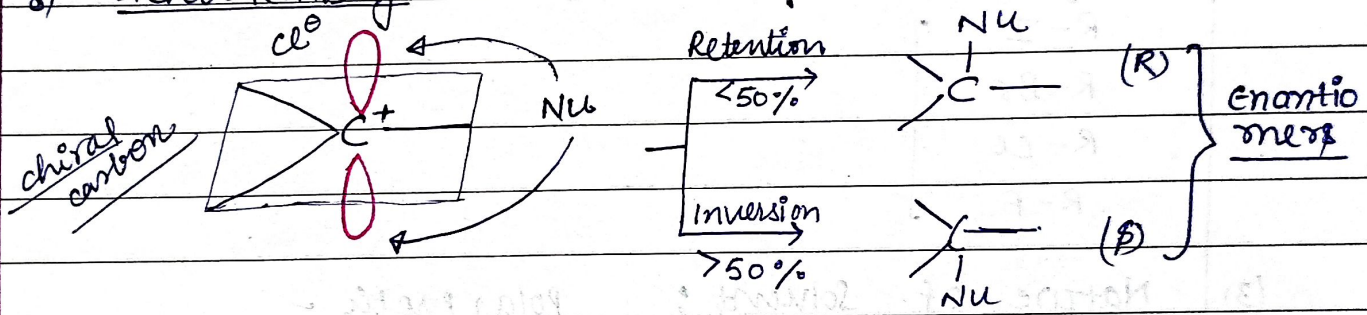 Cl⊖
chiral
carbon
C+
Nu
Retention
<50%
Nu
C
(R)
Inversion
>50%
C
Nu
(S)
enantio
mers